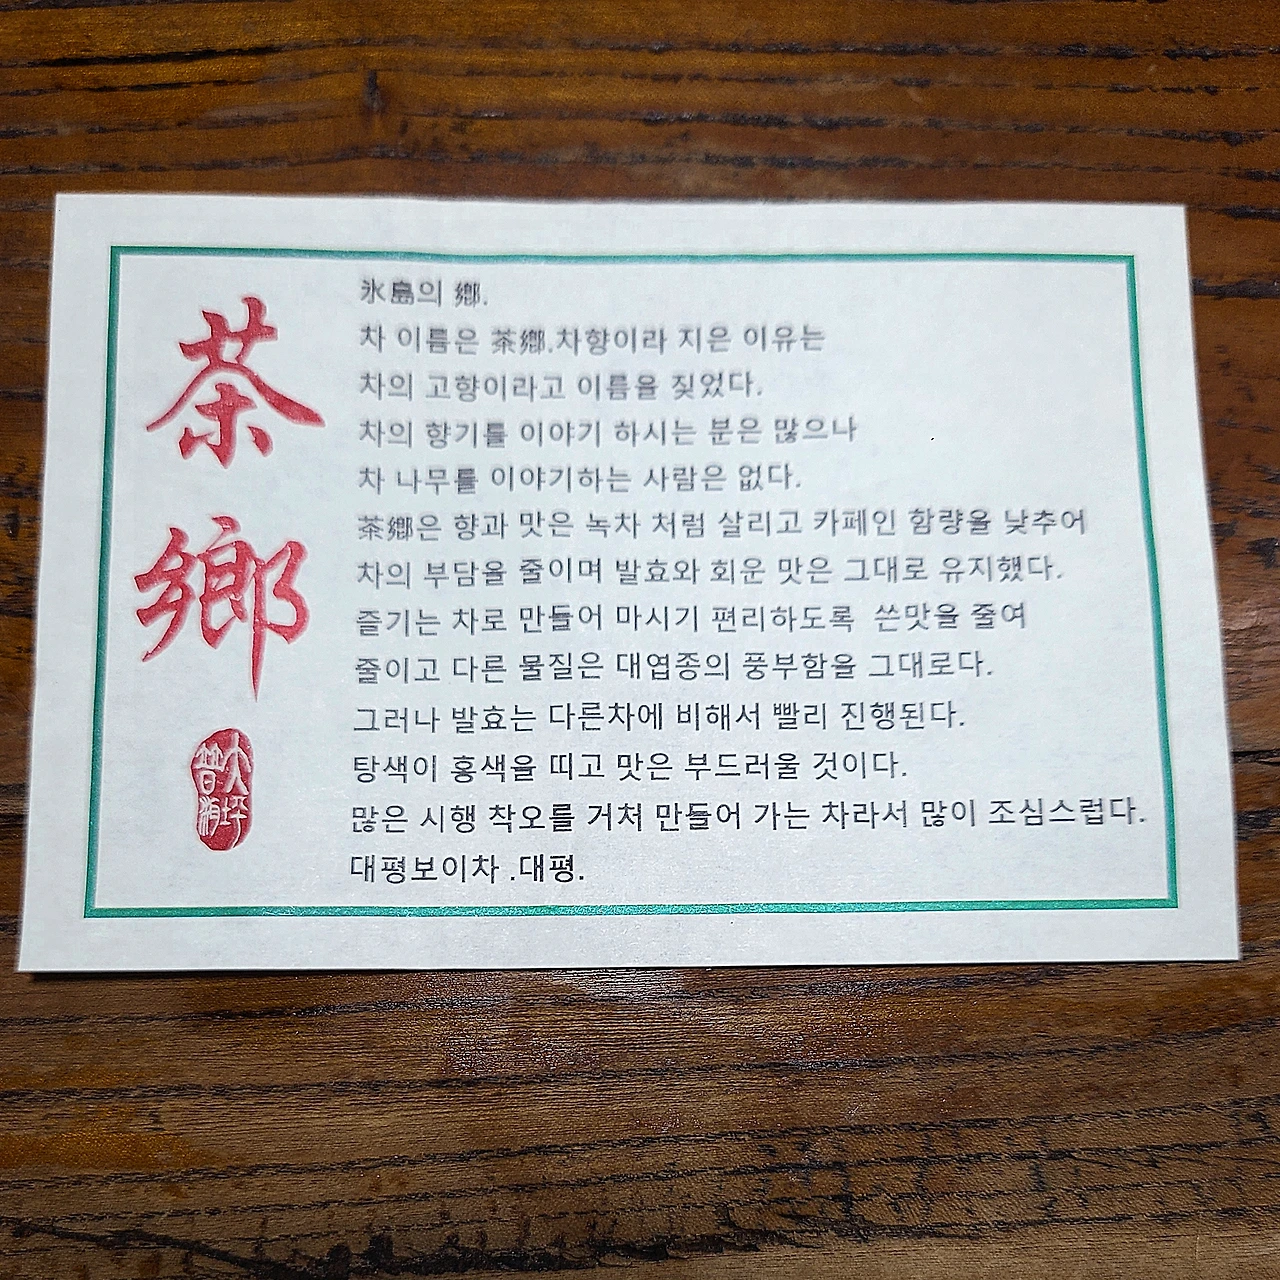 茶鄕
大坪
普洱
氷島의 鄕.
차 이름은 茶鄕.차향이라 지은 이유는
차의 고향이라고 이름을 짖었다.
차의 향기를 이야기 하시는 분은 많으나
차 나무를 이야기하는 사람은 없다.
茶鄕은 향과 맛은 녹차 처럼 살리고 카페인 함량을 낮추어
차의 부담을 줄이며 발효와 회운 맛은 그대로 유지했다.
즐기는 차로 만들어 마시기 편리하도록 쓴맛을 줄여
줄이고 다른 물질은 대엽종의 풍부함을 그대로다.
그러나 발효는 다른차에 비해서 빨리 진행된다.
탕색이 홍색을 띠고 맛은 부드러울 것이다.
많은 시행 착오를 거쳐 만들어 가는 차라서 많이 조심스럽다.
대평보이차 .대평.